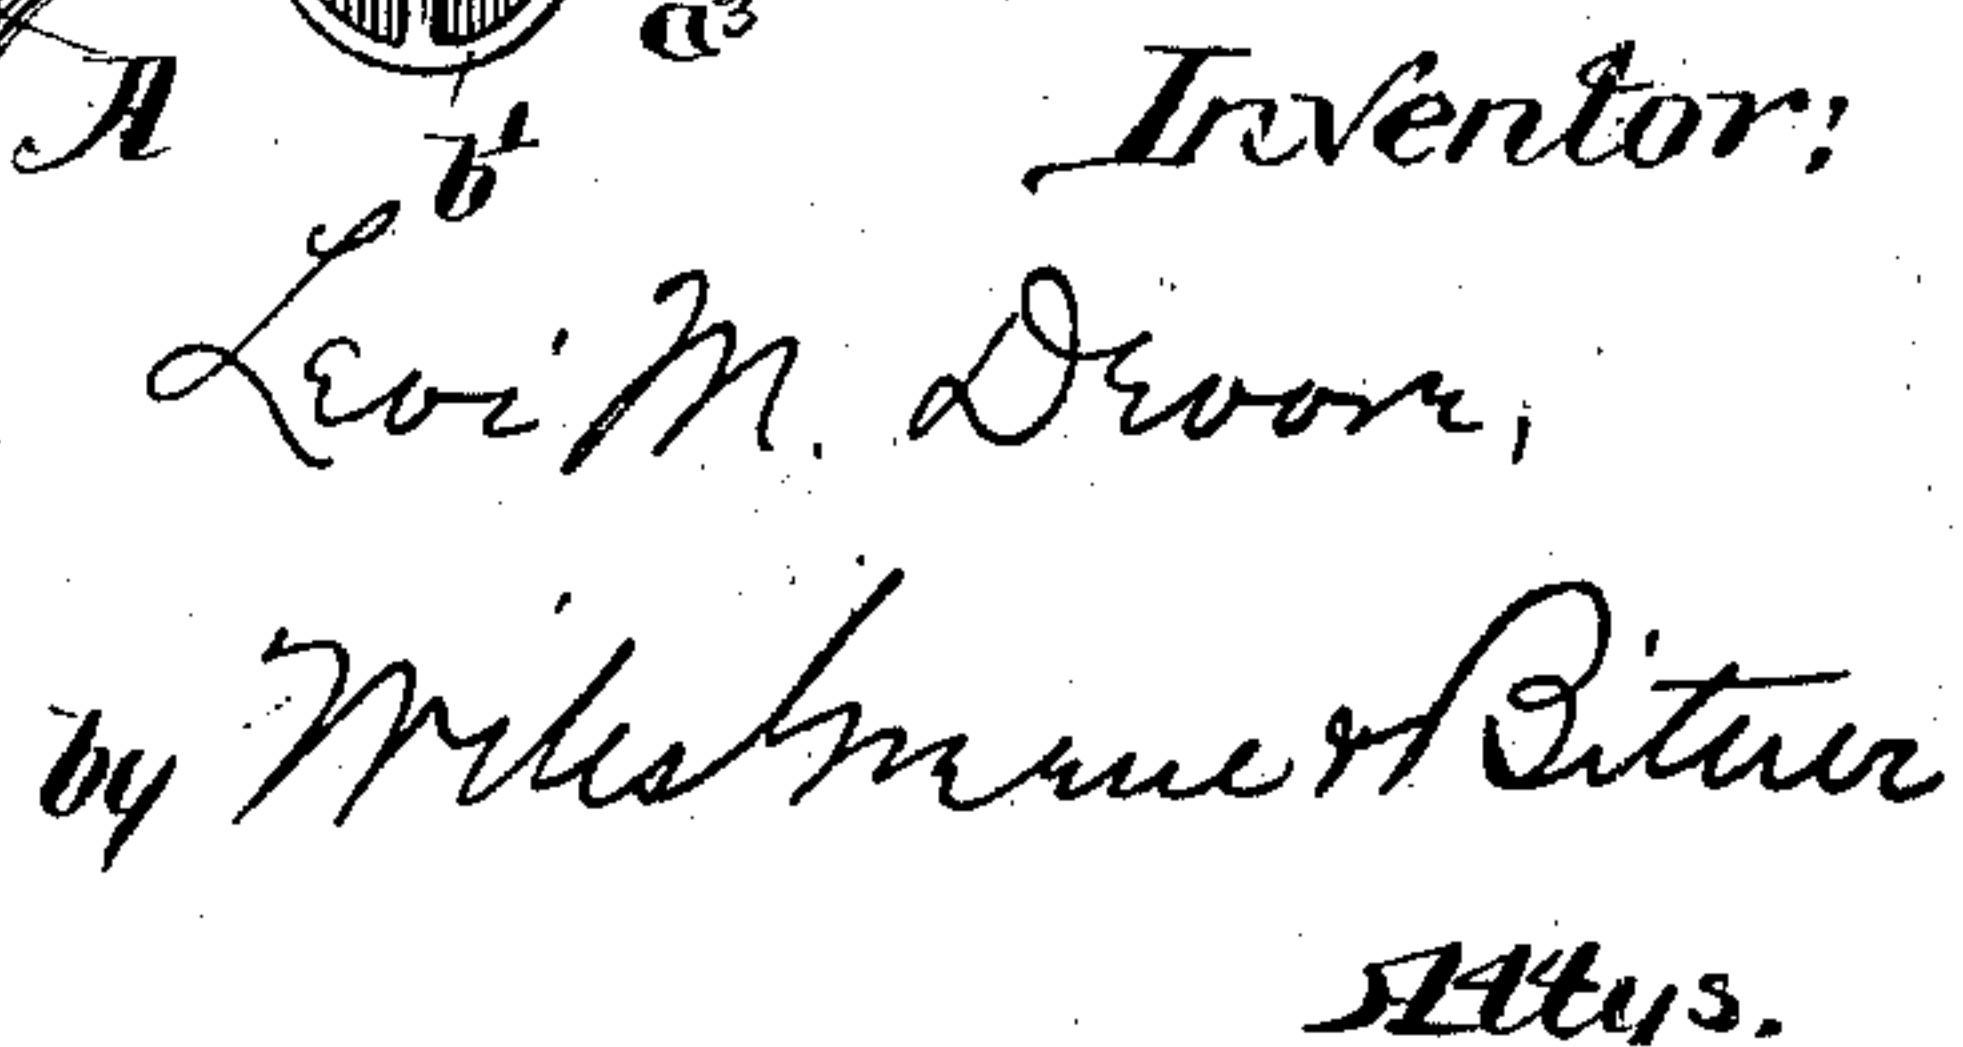 a³
A
b¹
Inventor:
Levi M. Devore,
by Miles Greene & Bitner
Attys.